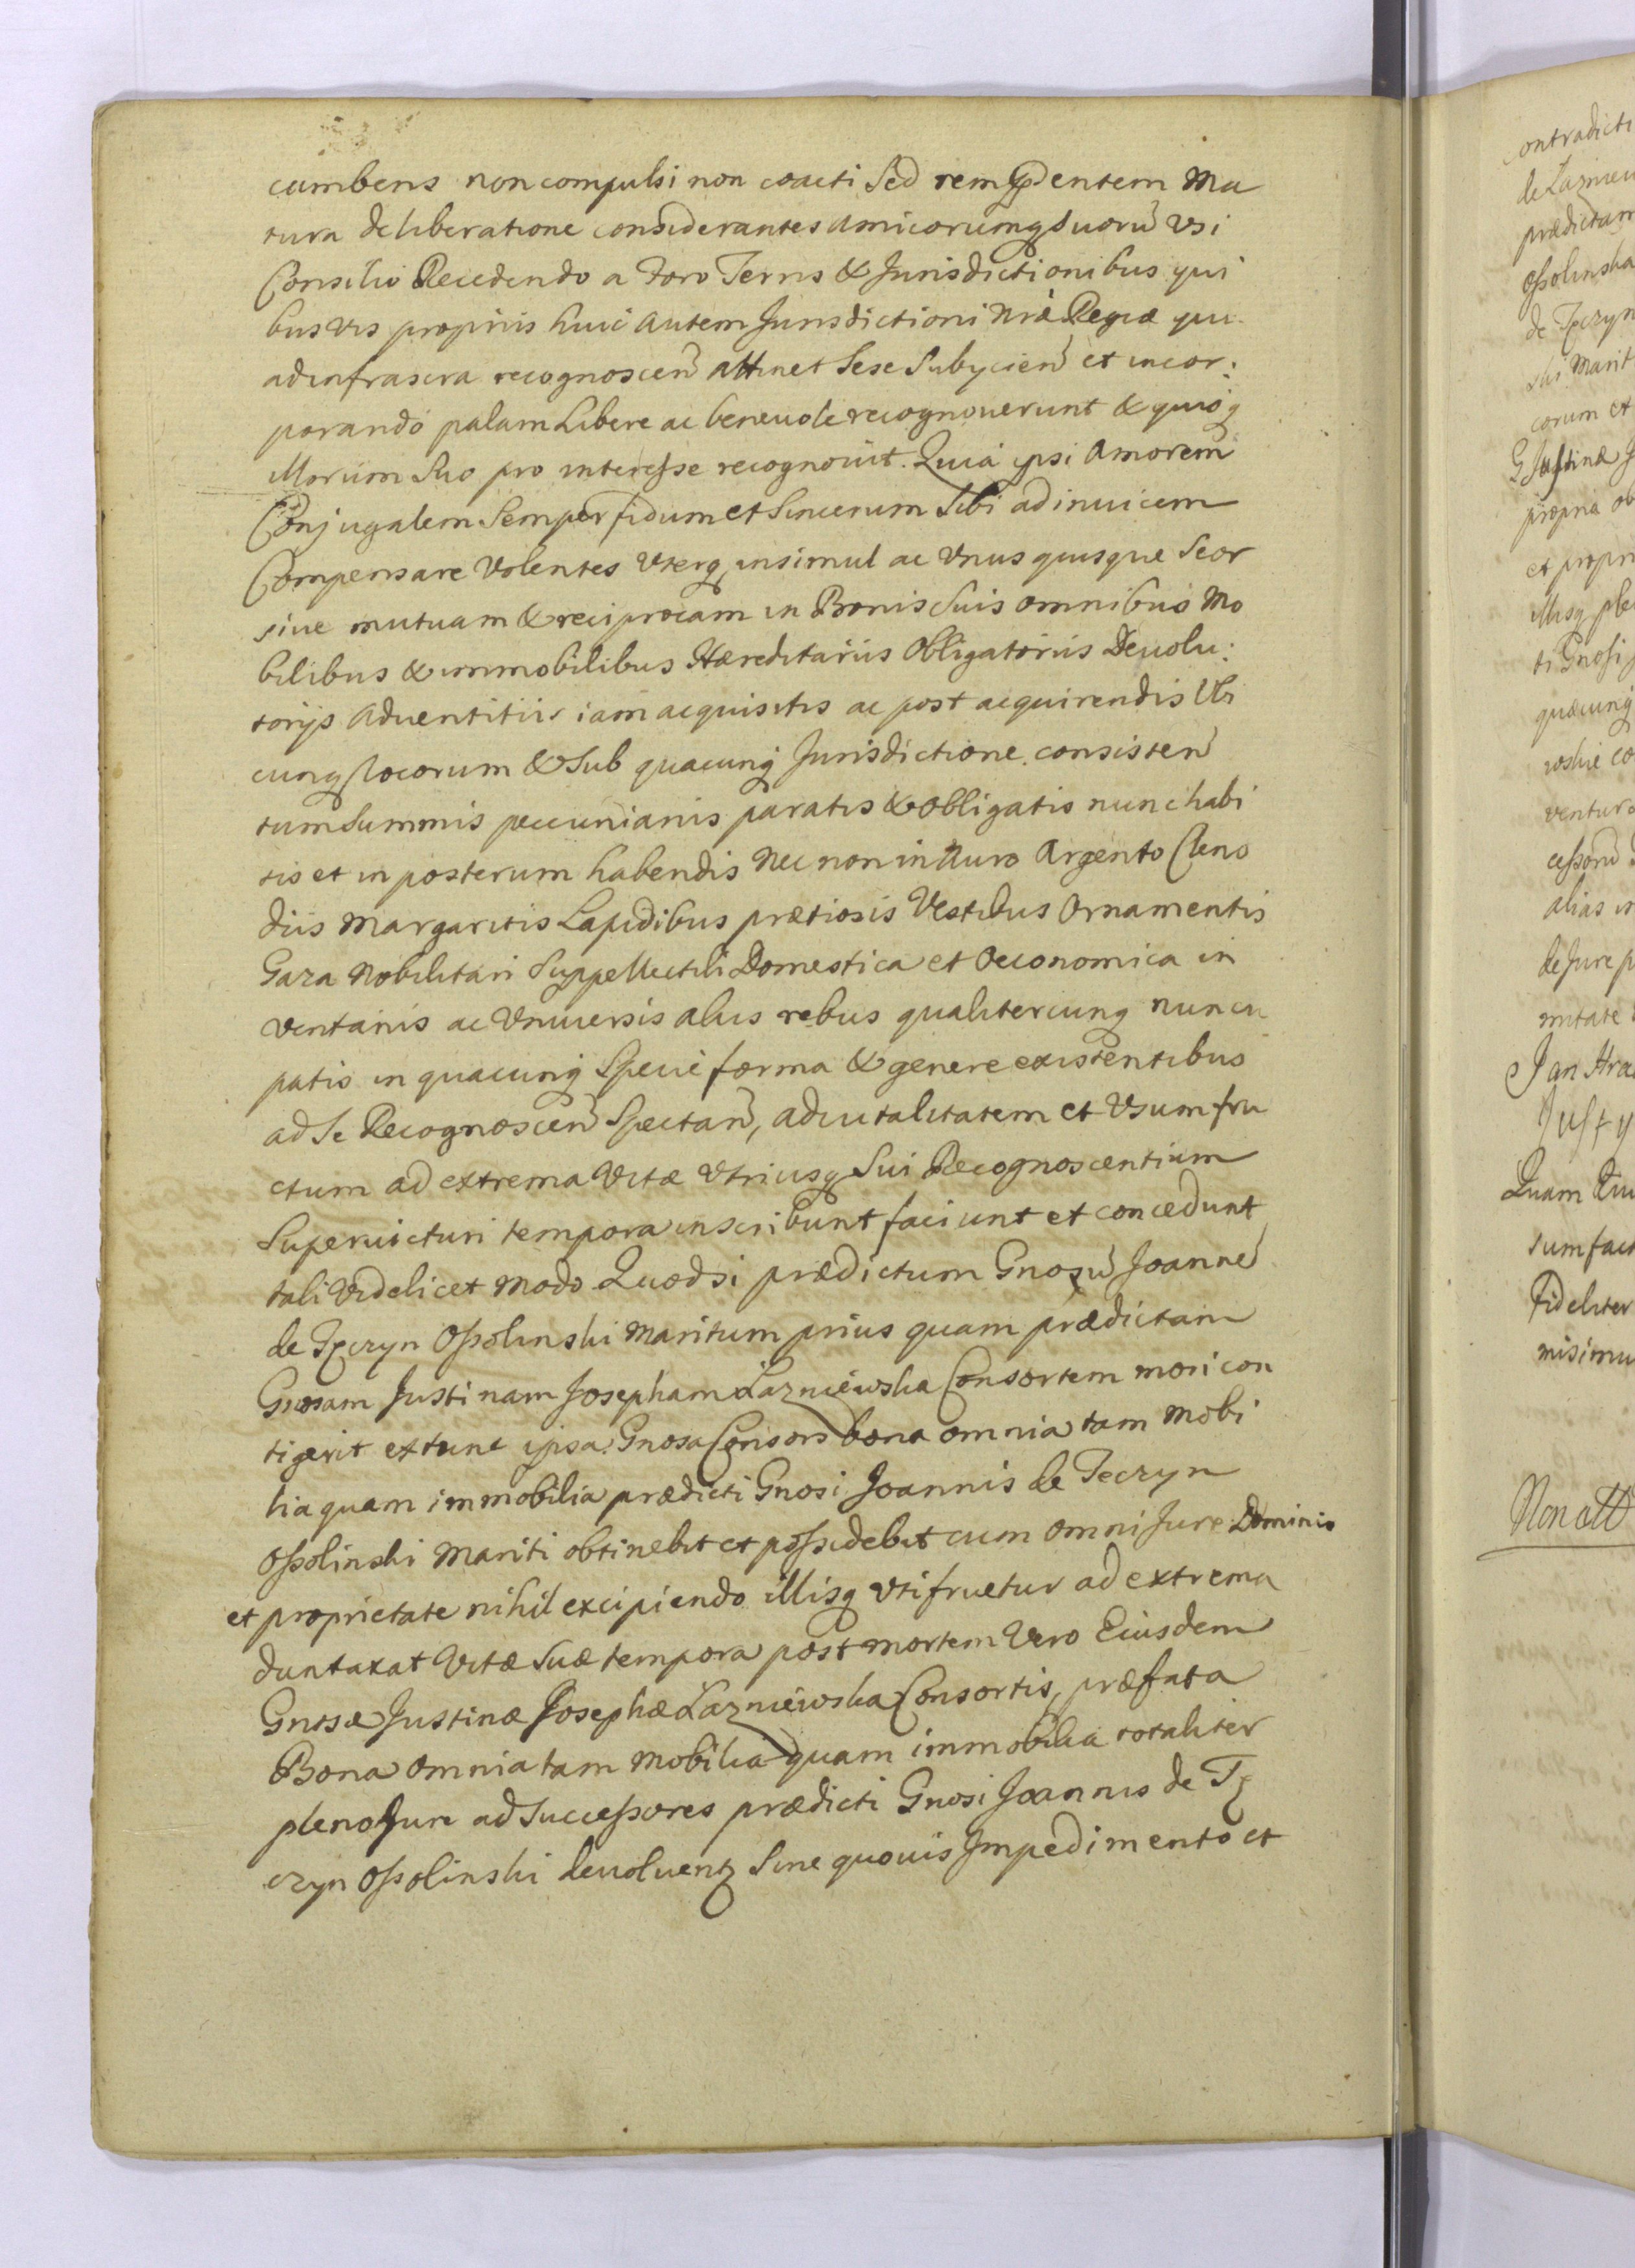 cumbens non compulsi non coacti Sed rem prudentem Ma
tura deliberatione considerantes Amicorumq suorū Vsi
Consilio Recedendo a Foro Terris & Jurisdictionibus qui
busvis proprijs huic autem Jurisdictioni Nrae Regiæ qu
ad infrascra recognoscen̄ attinet Sese Subijcien̄ et incor:
porando palam Libere ac beneuole recognouerunt & quisq
illorum Suo pro interesse recognouit. Quia ipsi Amorem
Conjugalem Semper fidum et Sincerum Sibi ad inuicem
Compensare Volentes Vterq insimul ac Vnus quisque Seor
siue mutuam & reciprocam in Bonis Suis omnibus Mo
bilibus & immobilibus Hæreditariis Obligatoriis Deuolu:
torijs Aduentitiis iam acquisitis ac post acquirendis Vbi
cunq locorum & Sub quacunq Jurisdictione consisten̄
tum Summis pecuniariis paratis & obligatis nunc habi
tis et in posterum habendis Nec non in Auro Argento Cleno
diis Margaritis Lapidibus prætiosis Vestibus Ornamentis
Gaza Nobilitari Suppellectili Domestica et Oeconomica in
ventariis ac Vniuersis aliis rebus qualitercunq nuncu
patis in quacunq Specie forma & genere existentibus
ad Se Recognoscen̄ Spectan̄, aduitalitatem et Vsum fru
ctum ad extrema Vitæ Vtriusq Sui Recognoscentium
Superuicturi tempora inscribunt faciunt et concedunt
tali Videlicet modo Quod si prædictum Gnosū Joannē
de Tęczyn Ossolinski Maritum prius quam prædictam
Gnosam Justinam Josepham Łazniewska Consortem mori con
tigerit extunc ipsa Gnosa Consors bona omnia tam Mobi
lia quam immobilia prædicti Gnosi Joannis de Teczyn
Ossolinski Mariti obtinebit et possidebit cum omni Jure Dominio
et proprietate nihil excipiendo illisq Vtifruetur ad extrema
duntaxat Vitæ Suæ tempora post mortem Vero Eiusdem
Gnosæ Justinæ Josephæ Łazniewska Consortis, præfata
Bona omnia tam Mobilia quam immobilia totaliter
pleno Jure ad Successores prædicti Gnosi Joannis de Tę
czyn Ossolinski deuoluent Sine quouis Impedimento et
contradicti
prædictam
Ossolinska
de Tęczyn
sui Marit
corum et
Justinæ J
propria ob
et propri
illisq ple
ti Gnosi J
quæcunq
ventura
alias in
de Jure p
Jan
Justy
Quam
sum fact
Fideliter
misimu
Non